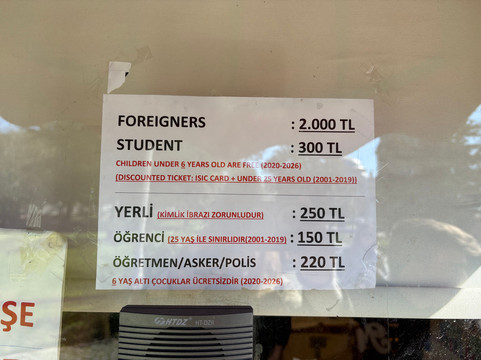 FOREIGNERS : 2.000 TL
STUDENT : 300 TL
CHILDREN UNDER 6 YEARS OLD ARE FREE (2020-2026)
(DISCOUNTED TICKET: ISIC CARD + UNDER 25 YEARS OLD (2001-2019))
YERLİ (KİMLİK İBRAZI ZORUNLUDUR) : 250 TL
ÖĞRENCİ (25 YAŞ İLE SINIRLIDIR(2001-2019) : 150 TL
ÖĞRETMEN/ASKER/POLİS : 220 TL
6 YAŞ ALTI ÇOCUKLAR ÜCRETSİZDİR (2020-2026)
ŞE
HTDZ